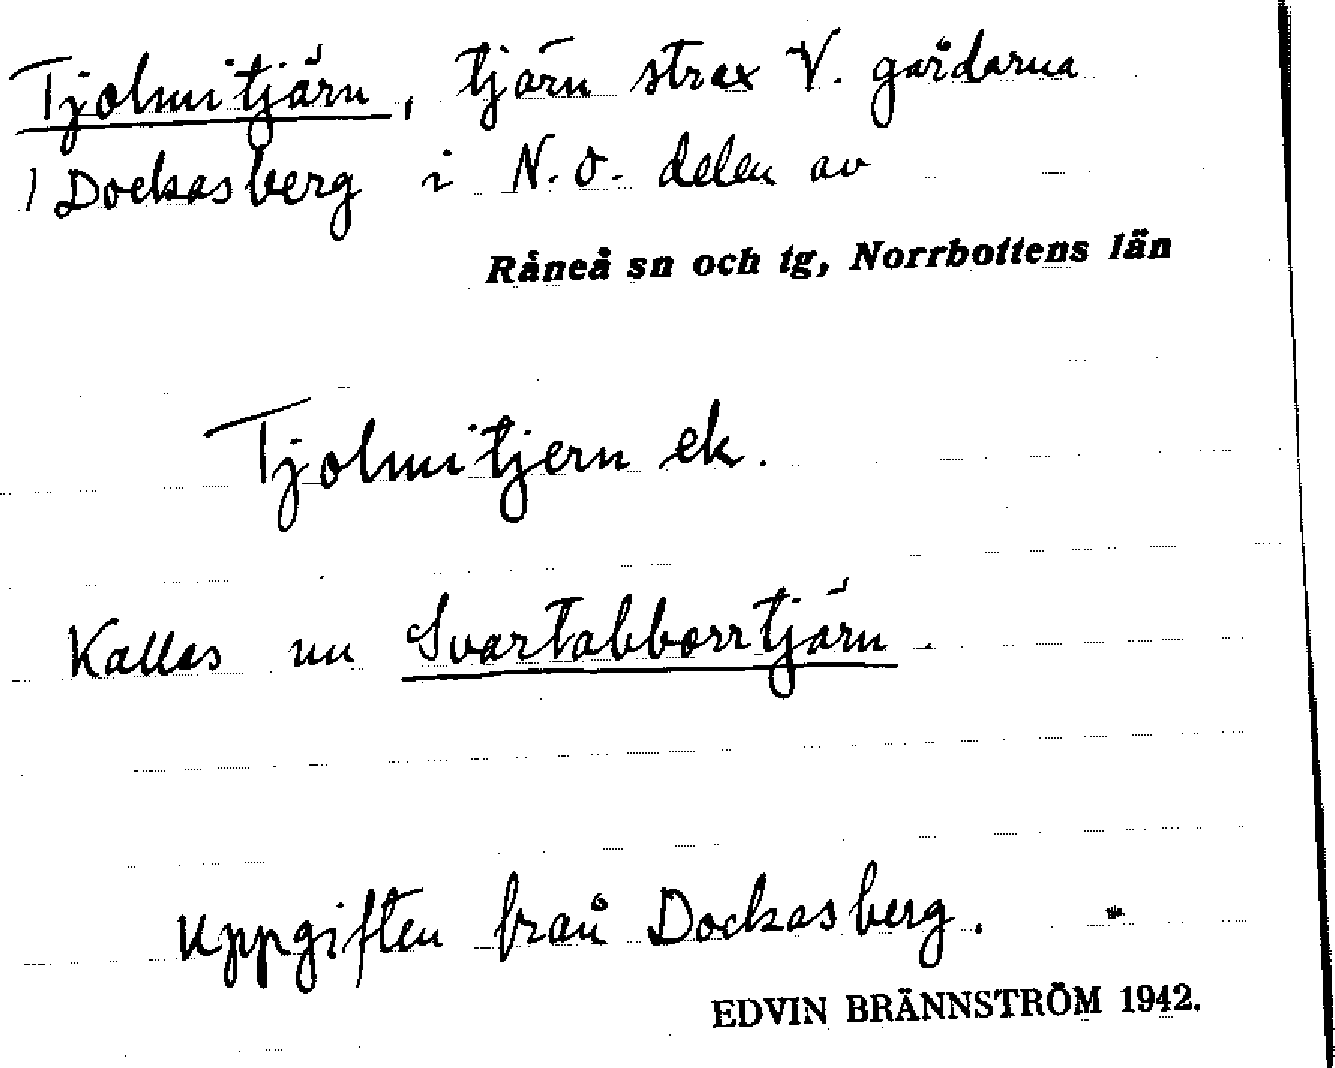 Tjolmitjärn, tjärn strax V. gårdarna
i Dockasberg i N.O. delen av
Råneå sn och tg, Norrbottens län
Tjolmitjern ek.
Kallas nu Svartabborrtjärn.
Uppgiften från Dockasberg.
EDVIN BRÄNNSTRÖM 1942.